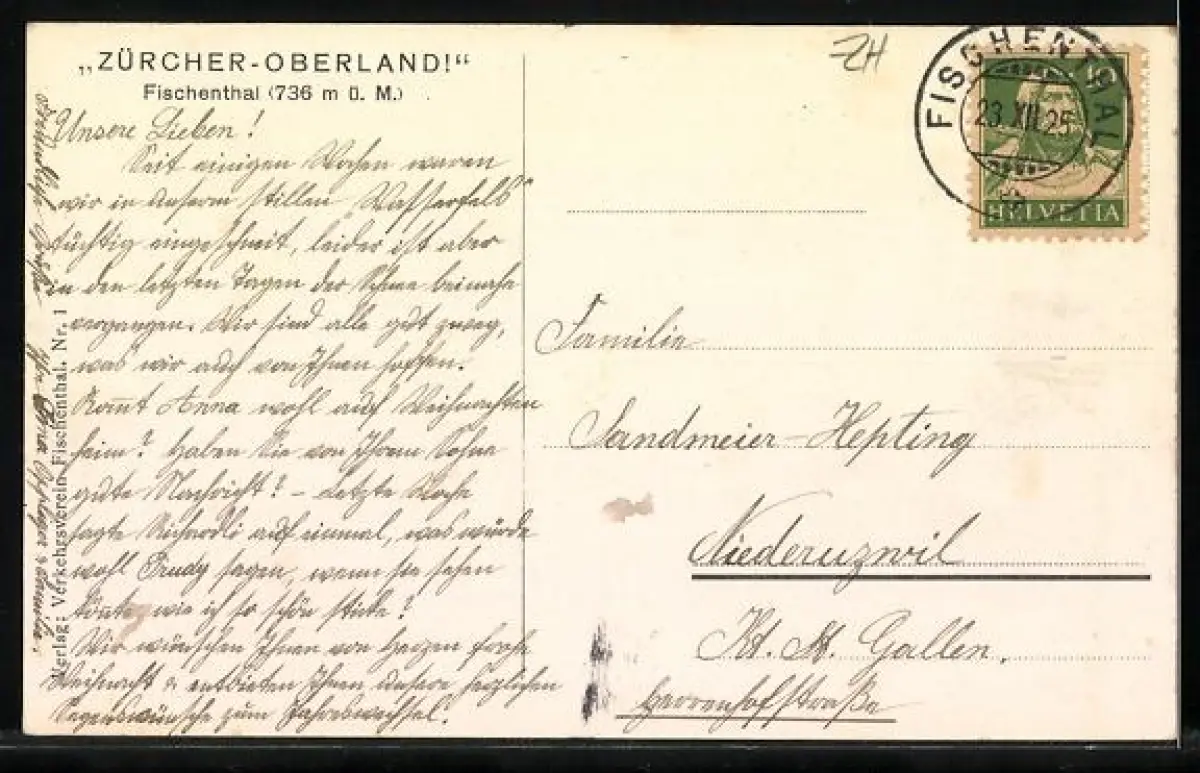 „ZÜRCHER-OBERLAND!“
Fischenthal (736 m ü. M.)
Unsere Lieben!
Seit einigen Wochen waren
wir in unserm stillen „Wasserfels“
tüchtig eingeschneit, leider ist aber
in den letzten Tagen der Schnee beinahe
vergangen. Wir sind alle gut zweg,
was wir auch von Ihnen hoffen.
Kommt Anna wohl auf Weihnachten
heim? Haben Sie von Ihrem Sohne
gute Nachricht? – Letzte Woche
sagte Richardli auf einmal, was würde
wohl Trudy sagen, wenn sie sehen
könnte, wie ich so schön sticke?
Wir wünschen Ihnen von Herzen frohe
Weihnacht & entbieten Ihnen unsere herzlichen
Segenswünsche zum Jahreswechsel.
Freundliche Grüsse
Verlag: Verkehrsverein Fischenthal. Nr. 1
ZH
FISCHENTHAL
23.XII.25
10
HELVETIA
Familie
Sandmeier-Hepting
Niederuzwil
Kt. St. Gallen.
Herrenhofstraße